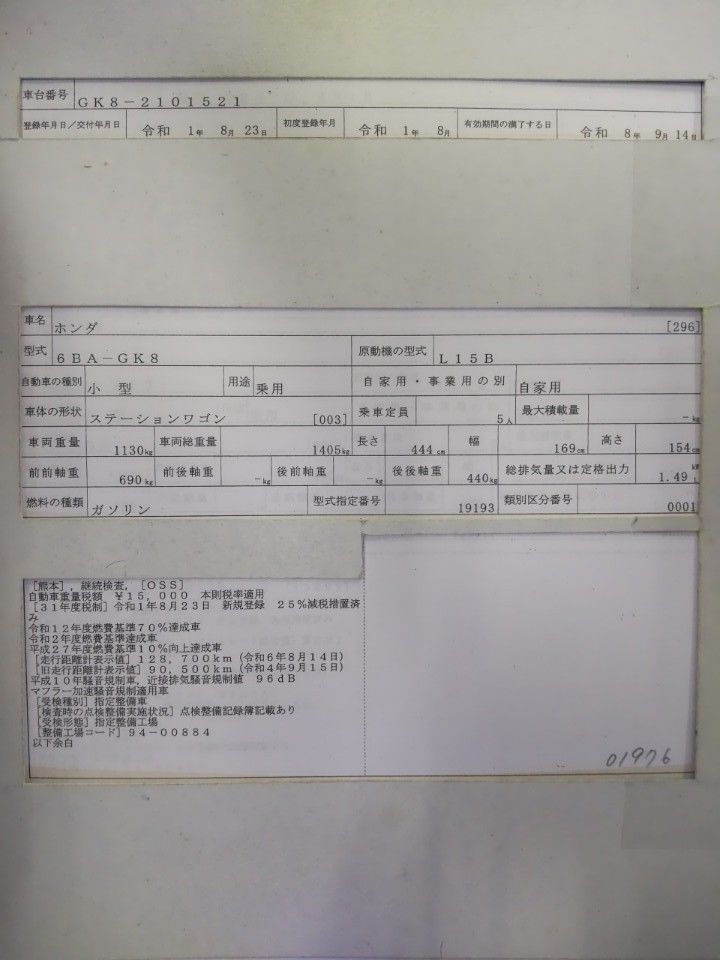 車台番号 GK8-2101521
登録年月日/交付年月日 令和 1年 8月 23日 初度登録年月 令和 1年 8月 有効期間の満了する日 令和 8年 9月 14日
車名 ホンダ [296]
型式 6BA-GK8 原動機の型式 L15B
自動車の種別 小 型 用途 乗用 自家用・事業用の別 自家用
車体の形状 ステーションワゴン [003] 乗車定員 5人 最大積載量 -kg
車両重量 1130kg 車両総重量 1405kg 長さ 444cm 幅 169cm 高さ 154cm
前前軸重 690kg 前後軸重 -kg 後前軸重 -kg 後後軸重 440kg 総排気量又は定格出力 1.49 kW L
燃料の種類 ガソリン 型式指定番号 19193 類別区分番号 0001
[熊本],継続検査,[OSS]
自動車重量税額 ¥15,000 本則税率適用
[31年度税制]令和1年8月23日 新規登録 25%減税措置済
み
令和12年度燃費基準70%達成車
令和2年度燃費基準達成車
平成27年度燃費基準10%向上達成車
[走行距離計表示値]128,700km(令和6年8月14日)
[旧走行距離計表示値]90,500km(令和4年9月15日)
平成10年騒音規制車,近接排気騒音規制値 96dB
マフラー加速騒音規制適用車
[受検種別]指定整備車
[検査時の点検整備実施状況]点検整備記録簿記載あり
[受検形態]指定整備工場
[整備工場コード]94-00884
以下余白
01976